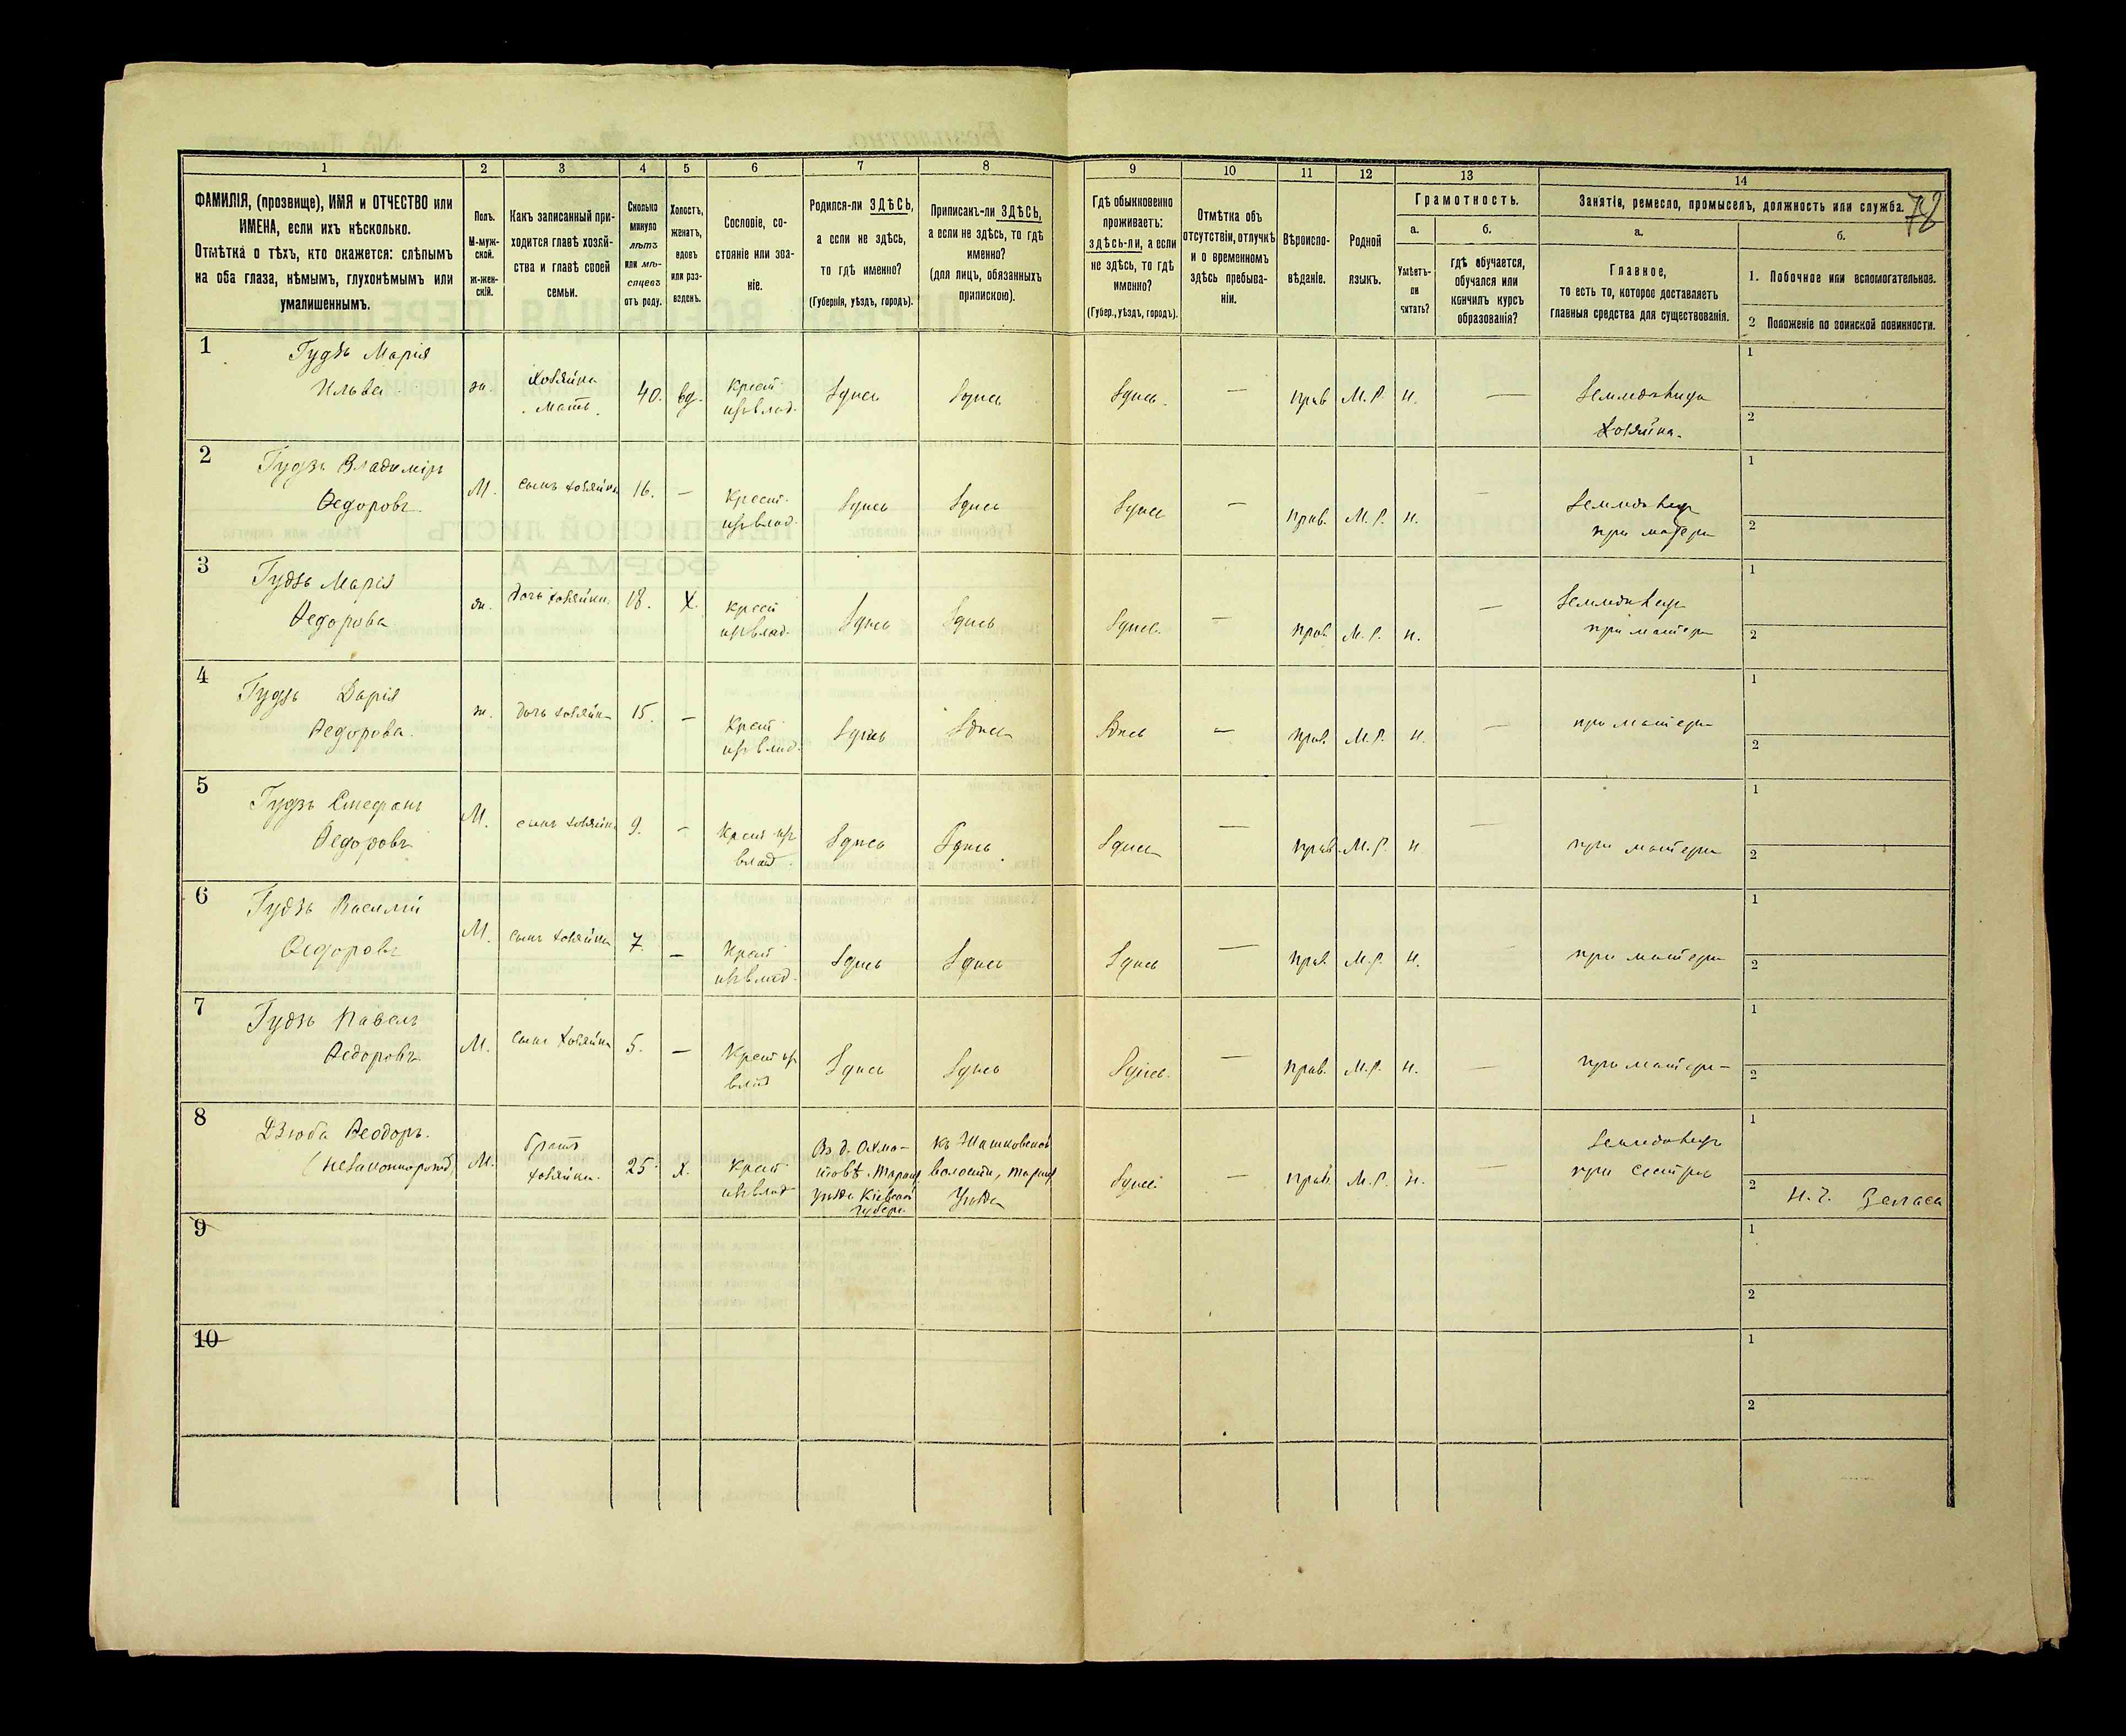 78
1 2 3 4 5 6 7 8 9 10 11 12 13 14
ФАМИЛІЯ, (прозвище), ИМЯ и ОТЧЕСТВО или
ИМЕНА, если ихъ нѣсколько.
Отмѣтка о тѣхъ, кто окажется: слѣпымъ
на оба глаза, нѣмымъ, глухонѣмымъ или
умалишеннымъ.
Полъ.
М-муж-
ской.
Ж-жен-
скій.
Какъ записанный при-
ходится главѣ хозяй-
ства и главѣ своей
семьи.
Сколько
минуло
лѣтъ
или мѣ-
сяцевъ
отъ роду.
Холостъ,
женатъ,
вдовъ
или раз-
веденъ.
Сословіе, со-
стояніе или зва-
ніе.
Родился-ли ЗДѢСЬ,
а если не здѣсь,
то гдѣ именно?
(Губернія, уѣздъ, городъ).
Приписанъ-ли ЗДѢСЬ,
а если не здѣсь, то гдѣ
именно?
(для лицъ, обязанныхъ
припискою).
Гдѣ обыкновенно
проживаетъ:
здѣсь-ли, а если
не здѣсь, то гдѣ
именно?
(Губер., уѣздъ, городъ).
Отмѣтка объ
отсутствіи, отлучкѣ
и о временномъ
здѣсь пребыва-
ніи.
Вѣроиспо-
вѣданіе.
Родной
языкъ.
Грамотность.
а.
Умѣетъ-
ли
читать?
б.
гдѣ обучается,
обучался или
кончилъ курсъ
образованія?
Занятіе, ремесло, промыселъ, должность или служба.
а.
Главное,
то есть то, которое доставляетъ
главныя средства для существованія.
б.
1. Побочное или вспомогательное.
2 Положеніе по воинской повинности.
1 Гудзь Марія
Ильва ж. Хозяйка
мать. 40. вд. крест.
изъ влад. Здись Здись Здись — прав М. Р. н. — Землединица
Хозяйка.
1
2
2 Гудзь Владиміръ
Федоровъ М. сынъ хозяйки 16. — Крест.
изъ влад. Здись Здись Здись — прав. М. Р. н. —
при матери
1
2
3 Гудзь Марія
Федорова ж. дочь хозяйки 18. Х. крест
изъ влад. Здись Здись Здись. — прав. М. Р. н. —
при матери
1
2
4 Гудзь Дарія
Федорова. ж. дочь хозяйки 15. — Крест
изъ влад. Здись Здись Здись — прав. М. Р. н. — при матери
1
2
5 Гудзь Стефанъ
Федоровъ М. сынъ хозяйки 9. — Крест изъ
влад. Здись Здись Здись — прав. М. Р. н — при матери
1
2
6 Гудзь Василій
Федоровъ М. сынъ хозяйки 7. — Крест
изъ влад. Здись Здись Здись — прав. М. Р. н. — при матери
1
2
7 Гудзь Павелъ
Федоровъ М. сынъ хозяйки 5. — Крест изъ
влад Здись Здись Здись. — прав. М. Р. н. — при матери
1
2
8 Дзюба Феодоръ.
(незаконнорожд) М. братъ
хозяйки. 25. х. Крест
изъ влад Въ д. Охма-
товѣ, Таращ
Уѣзда Кіевской
Губерн. къ Жашковской
волости, Таращ
Уѣзда Здись. — прав. М. Р. н. —
при сестрѣ
1
2 Н. Ч.
9
1
2
10
1
2